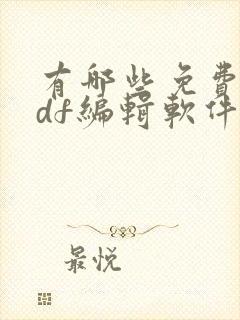 有哪些免費
df編輯軟件
最悦